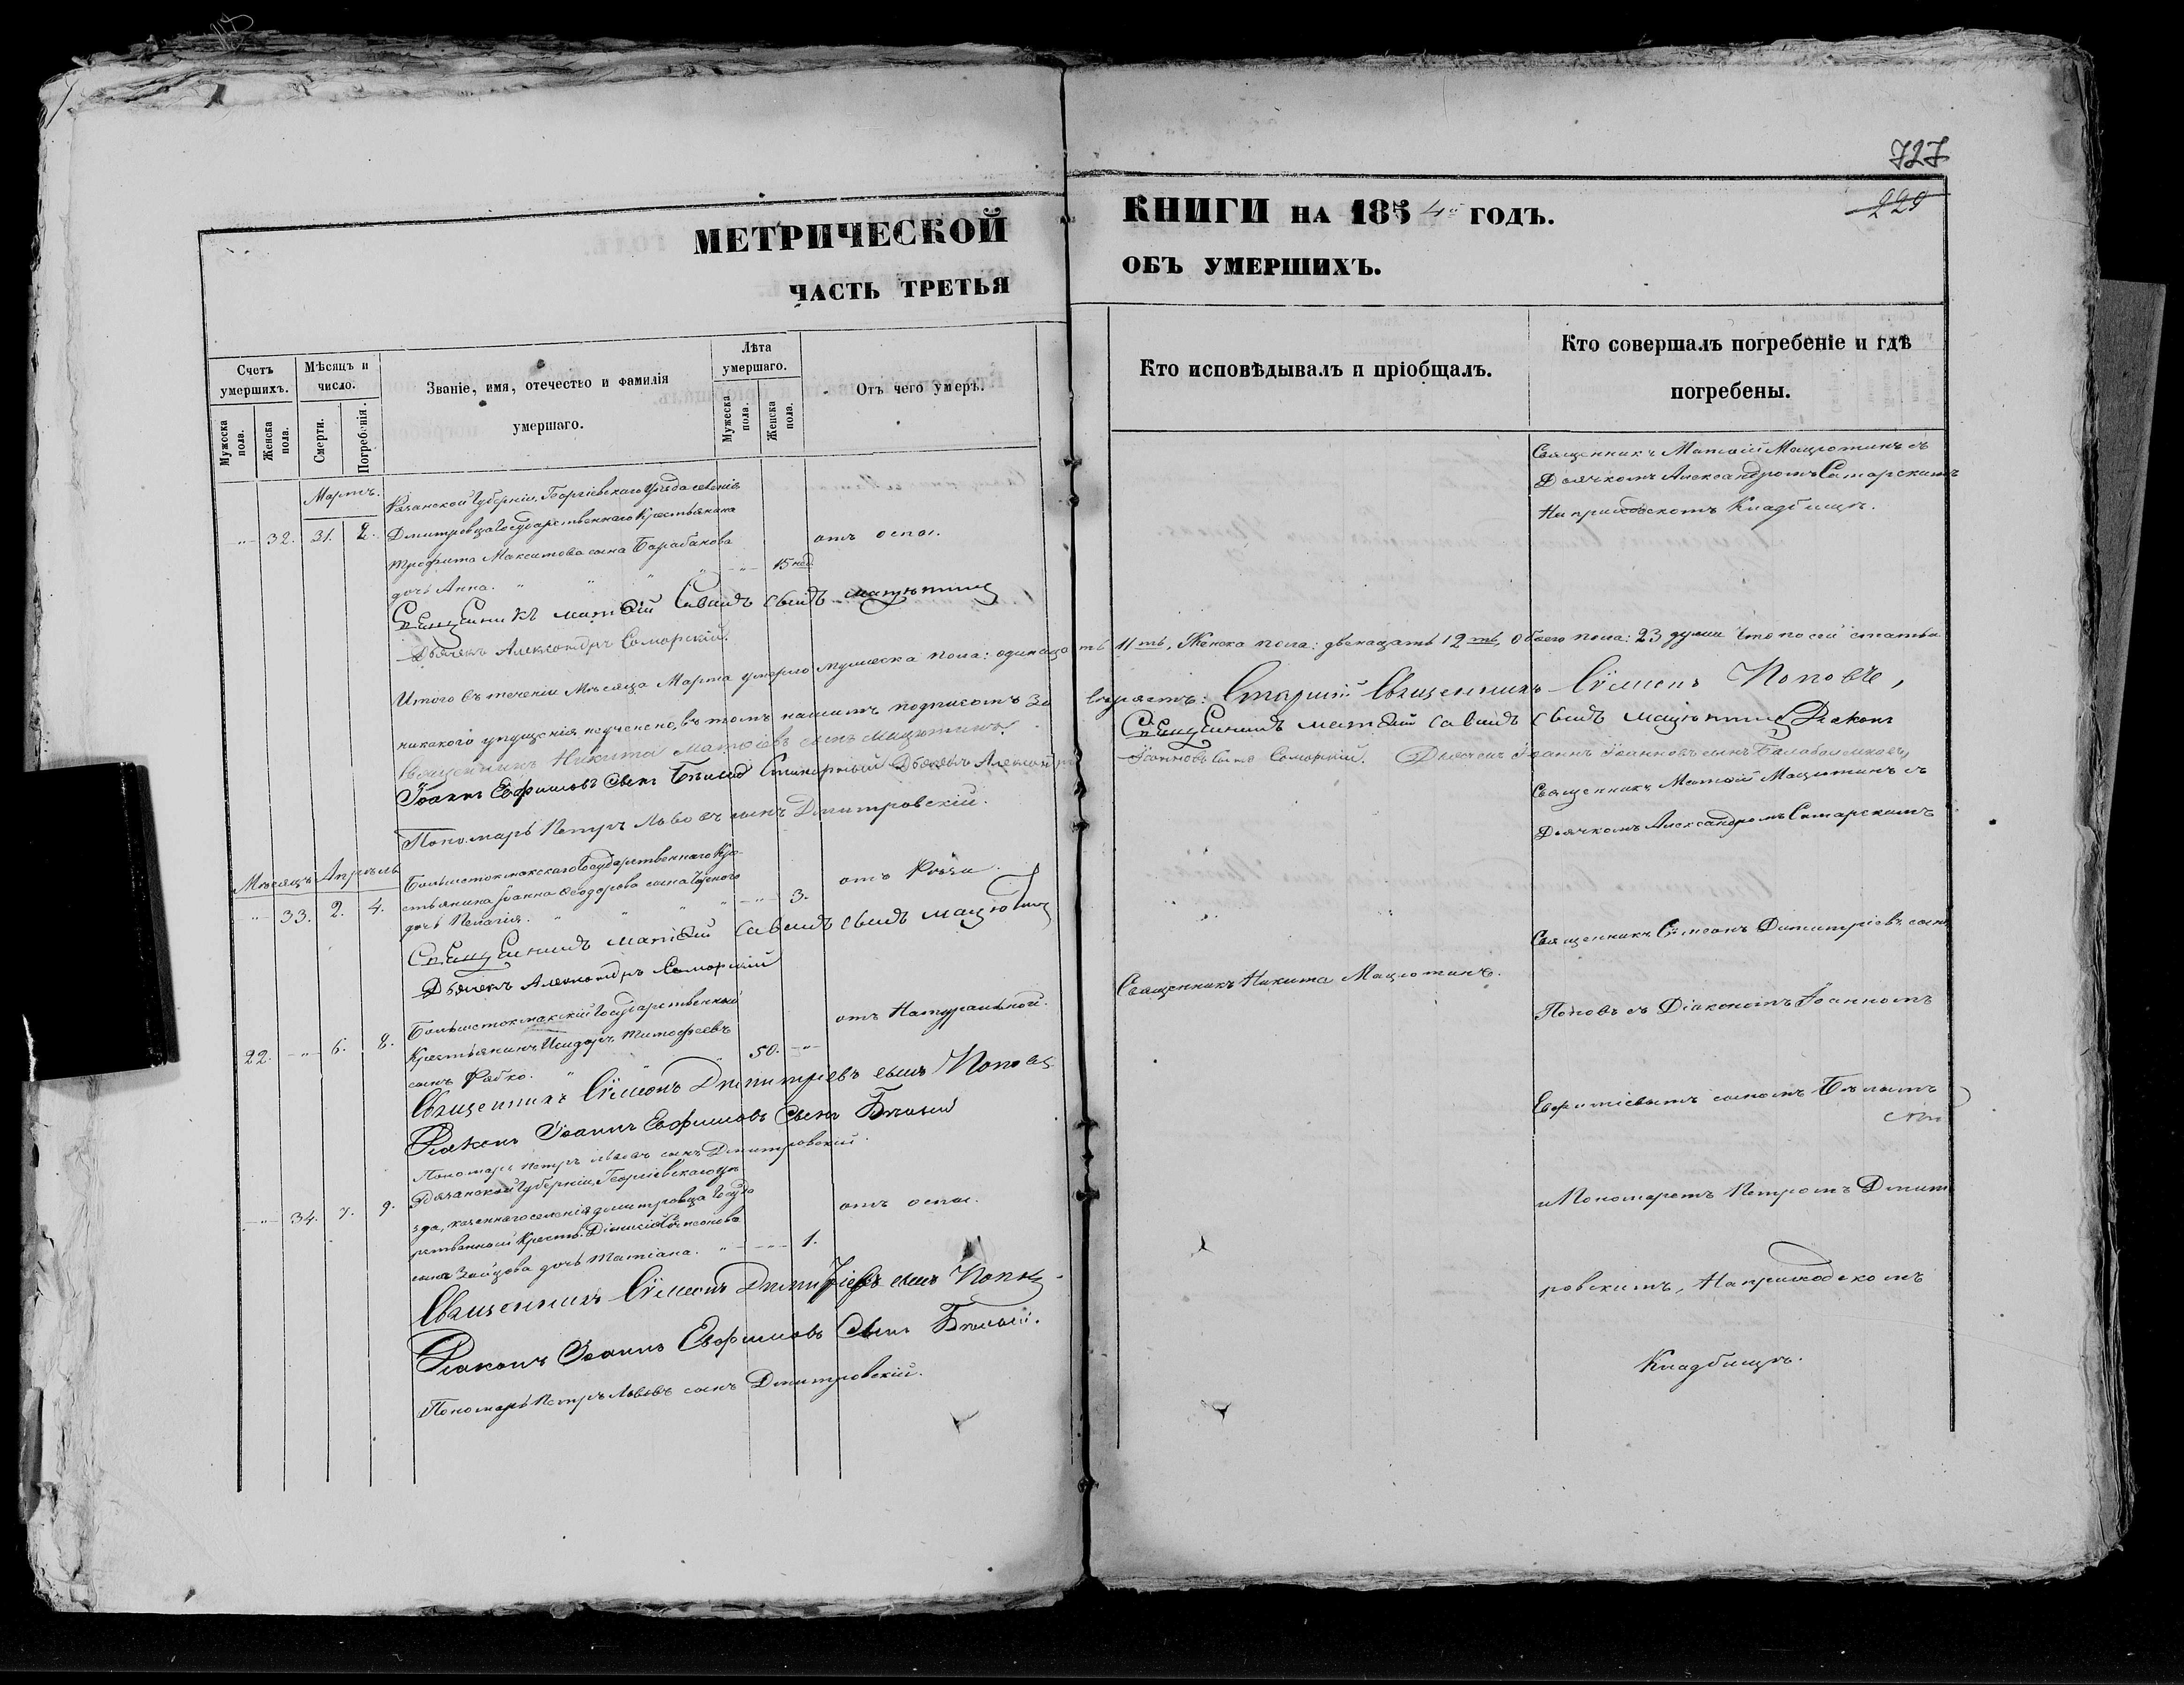 727
229
МЕТРИЧЕСКОЙ
КНИГИ НА 1854й ГОДЪ.
ЧАСТЬ ТРЕТЬЯ
ОБЪ УМЕРШИХЪ.
Счетъ умершихъ.
Мужеска пола.
Женска пола.
Мѣсяцъ и число.
Смерти.
Погребенія.
Званіе, имя, отечество и фамилія
умершаго.
Лѣта умершаго.
Мужеска пола.
Женска пола.
Отъ чего умеръ.
Кто исповѣдывалъ и пріобщалъ.
Кто совершалъ погребеніе и гдѣ
погребены.
Мартъ.
Губерніи, Георгіевскаго Уѣзда селенія
Дмитровца Государственнаго Крестьянина
Трофима Максимова сына Барабанова
дочь Анна.
" 32. 31. 2.
15 нед.
отъ оспы.
Священникъ Матѳій Мацютинъ съ
Дьячкомъ Александромъ Самарскимъ
На приходскомъ Кладбищѣ.
Священникъ Матѳій Саввинъ сынъ Мацютинъ
Дьячекъ Александръ Самарскій.
Итого въ теченіи Мѣсяца Марта умерло мужеска пола: одинадцать 11ть, Женска пола: двенацать 12ть, Обоего пола: 23 души Что по сей статьи
никакого упущенія неучинено, въ томъ нашимъ подписомъ Старшій Священникъ Сѵмеонъ Поповъ,
Священникъ Никита Матѳіевъ сынъ Мацютинъ Священникъ Матѳій Саввинъ сынъ Мацютинъ Діаконъ
Іоаннъ Евфимовъ Сынъ Бѣлый Дьячекъ Іоанновъ Сынъ Самарскій. Дьячекъ Іоаннъ Іоанновъ сынъ
Пономарь Петръ Львовъ сынъ Дмитровскій.
Мѣсяцъ Апрѣль
Большетокмакскаго Государственнаго Кре-
стьянина Іоанна Ѳеодорова сына
дочь Пелагія.
" 33. 2. 4.
3.
Священникъ Матѳій Мацютинъ съ
Дьячкомъ Александромъ Самарскимъ
Священникъ Матѳій Саввинъ сынъ Мацютинъ
Дьячекъ Александръ Самарскій
Большетокмакскій Государственный
Крестьянинъ Исидоръ Тимофеевъ
сынъ Рябко.
22. " 6. 8.
50. "
отъ Натуральной.
Священникъ Никита Мацютинъ.
Священникъ Сѵмеонъ Димитріевъ сынъ
Поповъ съ Діакономъ Іоанномъ
Евфиміевымъ сыномъ Бѣлымъ
и Пономаремъ Петромъ Дмит
ровскимъ, На приходскомъ
Кладбищѣ.
Священникъ Сѵмеонъ Димитріевъ сынъ Поповъ
Діаконъ Іоаннъ Евфимовъ Сынъ Бѣлый
Пономарь Петръ Львовъ сынъ Дмитровскій.
Губерніи, Георгіевскаго уѣ
зда, казеннаго селенія Дмитровца Госуда
рственной Крестья. Діонисія Сѵмеонова
сына Зайцова дочь Татіана.
" 34. 7. 9.
1.
отъ оспы.
Священникъ Сѵмеонъ Димитріевъ сынъ Поповъ
Діаконъ Іоаннъ Евфимовъ Сынъ Бѣлый.
Пономарь Петръ Львовъ сынъ Дмитровскій.